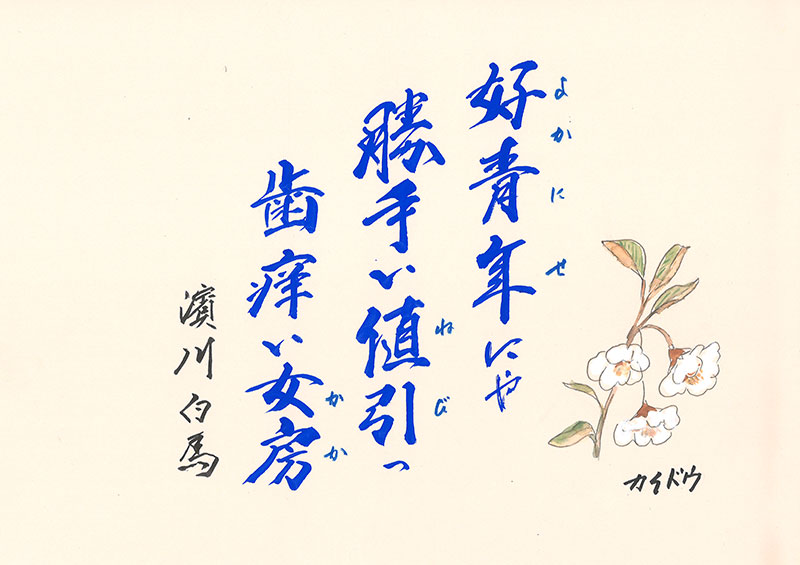 好青年にや
よかにせ
勝手い値引っ
ねび
歯痒い女房
かか
濵川白馬
カイドウ